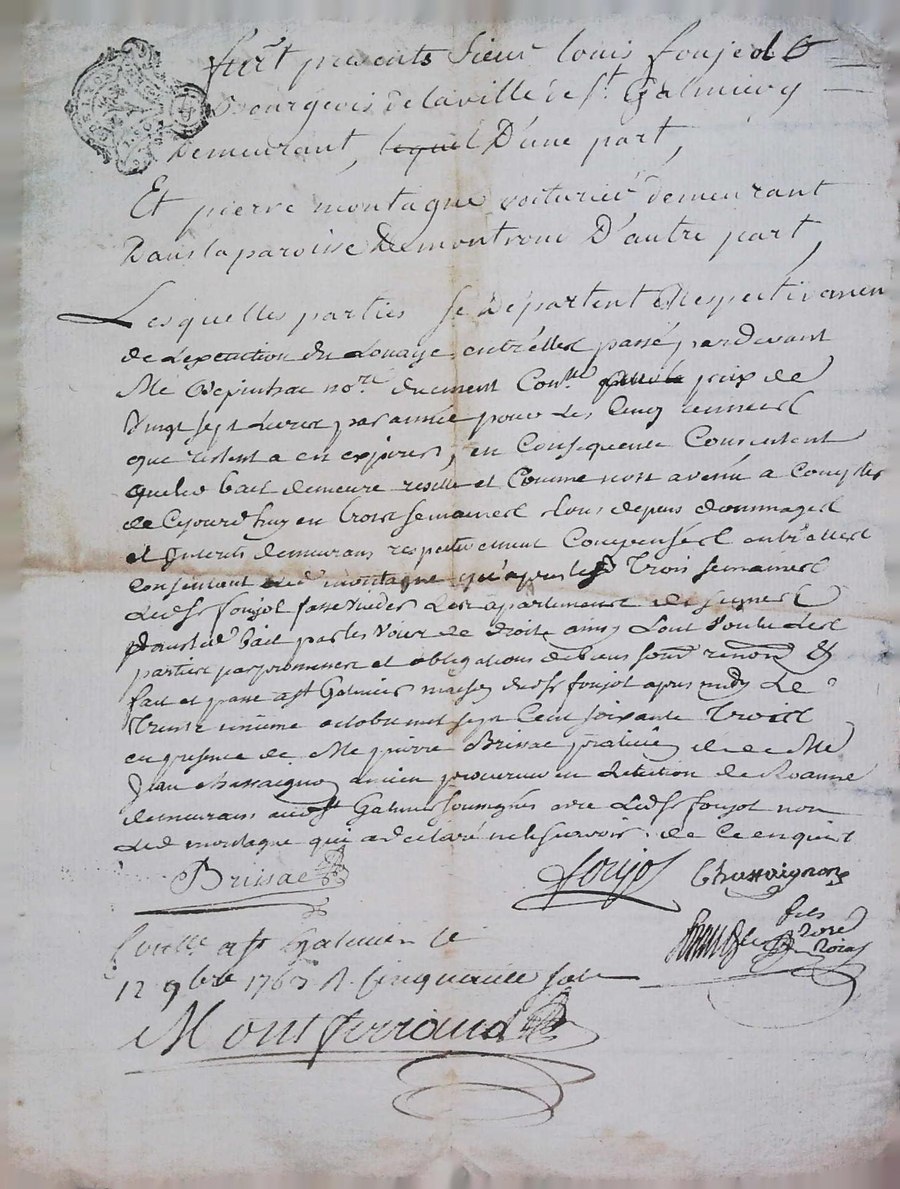 furt presents Sieur Louis foujol
Bourgeois de la ville de St. Galmier y
Demeurant, lequel D'une part,
Et pierre montagne voiturier demeurant
Dans la paroisse De montrond D'autre part,
Lesquelles parties se Départent Respectivemen
de Lexecution du Louage entrelles passé pardevant
Me nore. du cment Conlle prix de
Vingt sept Livres par année pour Les Cinq années
que restent a en expirer, en Consequence Consentent
que led bail demeure resillé et Comme non avenu a Compter
de Cejourd'huy en trois semaines tous depens dommages
et Interets demeurans respectivement Compensés entrelles
consentant led montagne qu'apres lesd Trois semaines
Led Sr foujol fasse vuider Les apartements
dans led bail par les Voies de droit, ainsy Lont voulu Les
parties par promesses et obligations de biens soumd renond &
fait et passé a St Galmier maison dud Sr foujol apres midy Le
Trente unieme octobre mil sept Cent soixante Trois
en presence de Me pierre Brissac praticien et de Me
Jean chassaignon ancien procureur en Lelection de Roanne
demeurans aud St Galmier soussignés avec Led Sr foujol non
Led montagne qui a declaré ne le sçavoir de Ce enquis
Brissac
foujol
Chassaignon
fils
nore
roial
Conlle. a St Galmier le
12 9bre 1763 R. Cinquante sols
Montferrand